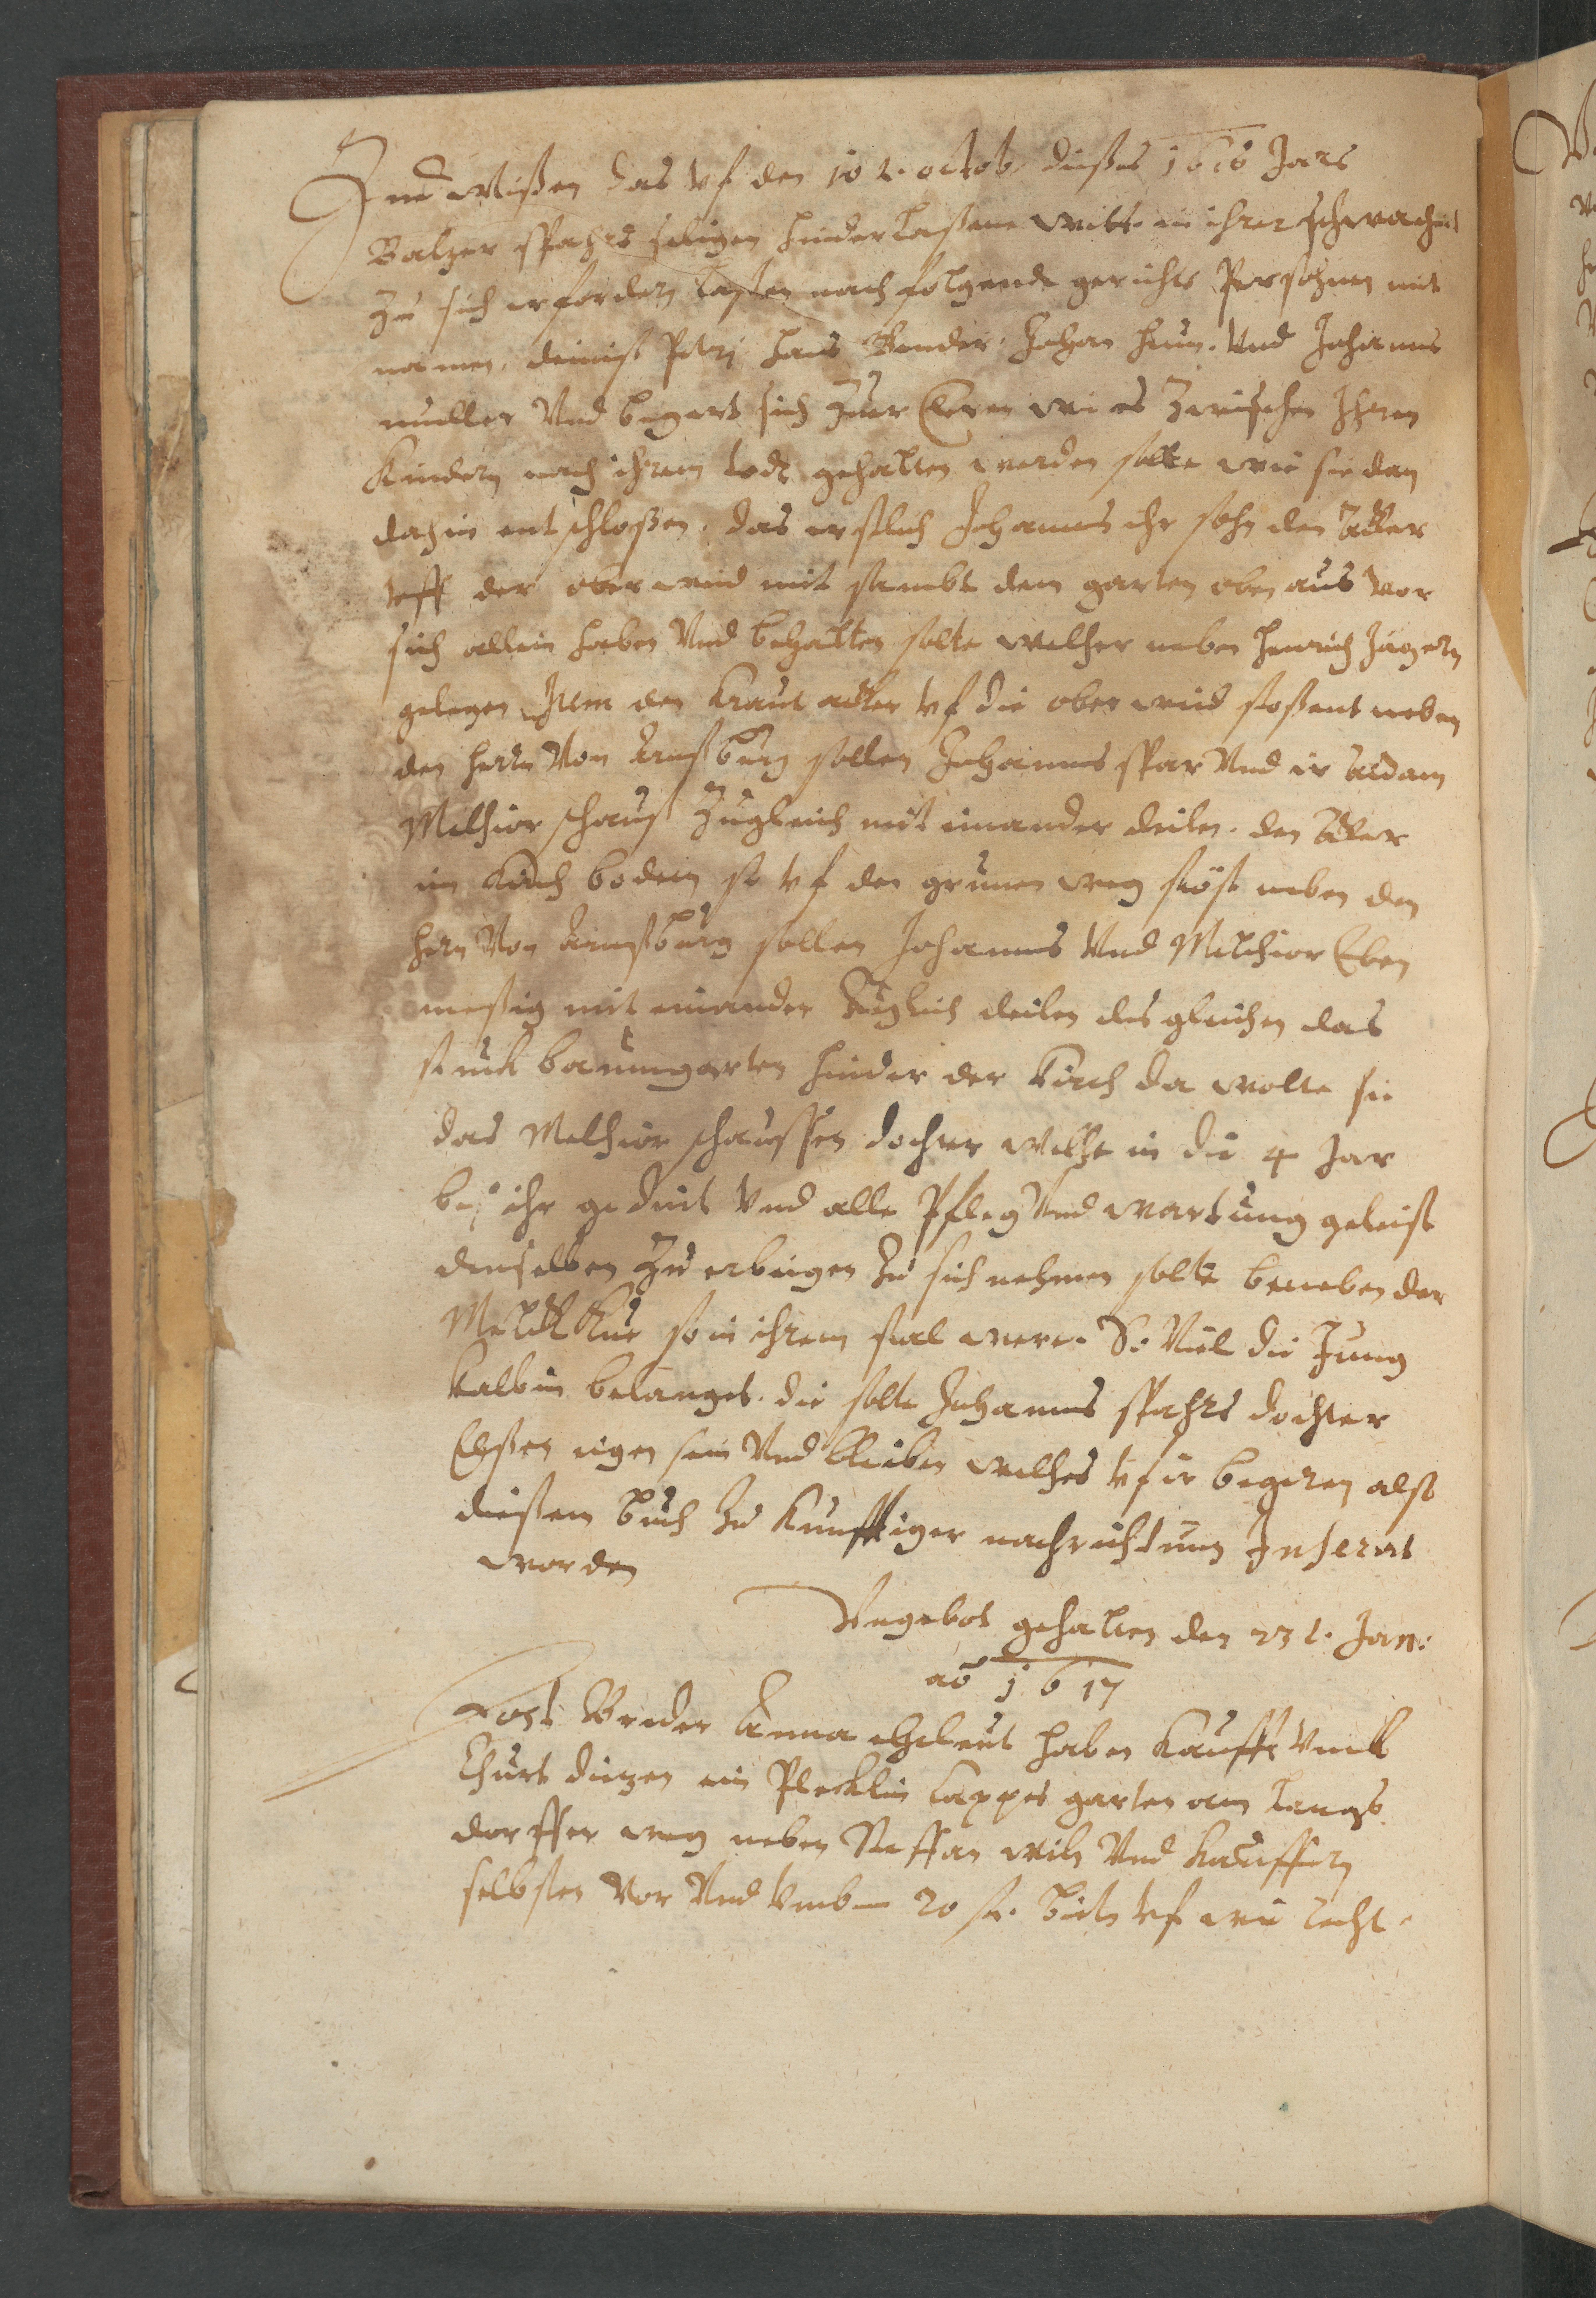 Zu Wißen das vf den 10 t. octob. dießes 1616 Jars
Balzer spahrs seligen hinderlaßene witt. in ihrer schwacheit
zu sich erfordern laßen nachfolgende gerichts Persohnen mit
namen, Petri Hans Bender, Johan Und Johannes
muller Und begert sich zu er Cleren wi es zwischen Ihren
Kindern nach ihrem todt gehalten werden solte wie sie dan
dahin entschloßen. das erstlich Johannes ihr sohn den acker
vff der ober wied mit sambt dem garten oben aus vor
sich allein haben Und behalten solte welcher neben Henrich Jägern
gelegen Item den Kraut acker vf die ober wied stoßent neben
den Herrn Von Arnsburg sollen Johannes spar Und ir aidam
Melchior schaus zugleich mit einander deilen. den acker
im Kirch bodem so vf den grunen weg stöst neben den
Hern Von Arnsburg sollen Johannes Und Melchior Eben
meßig mit einander zugleich deilen des gleichen das
stuck baumgarten hinder der Kirch da wolte sie
das Melchior schaussen dochter welche in die 4 Jar
bei ihr gedint Und alle Pfleg Und wartung geleist
denselben zu erb eigen zu sich nehmen solte beneben der
Melck Kue so in ihrem stal were. So Viel die Jung
Kalbin belanget. die solte Johannes spahrs dochter
Elßen eigen sein Und bleiben welches vf ir begeren alß
dießem buch zu Kunfftiger nachrichtung Inserirt
worden
Ungebot gehalten den 23 t. Jan:
ao 1617
Jost Breder Anna eheleut haben Kaufft Umb
Churt dietzen ein Plecklin Cappes garten am Langs
dorffer weg neben Steffan wiln Und Kauffern
selbsten Vor Und Umb 20 fl. vf wie recht.